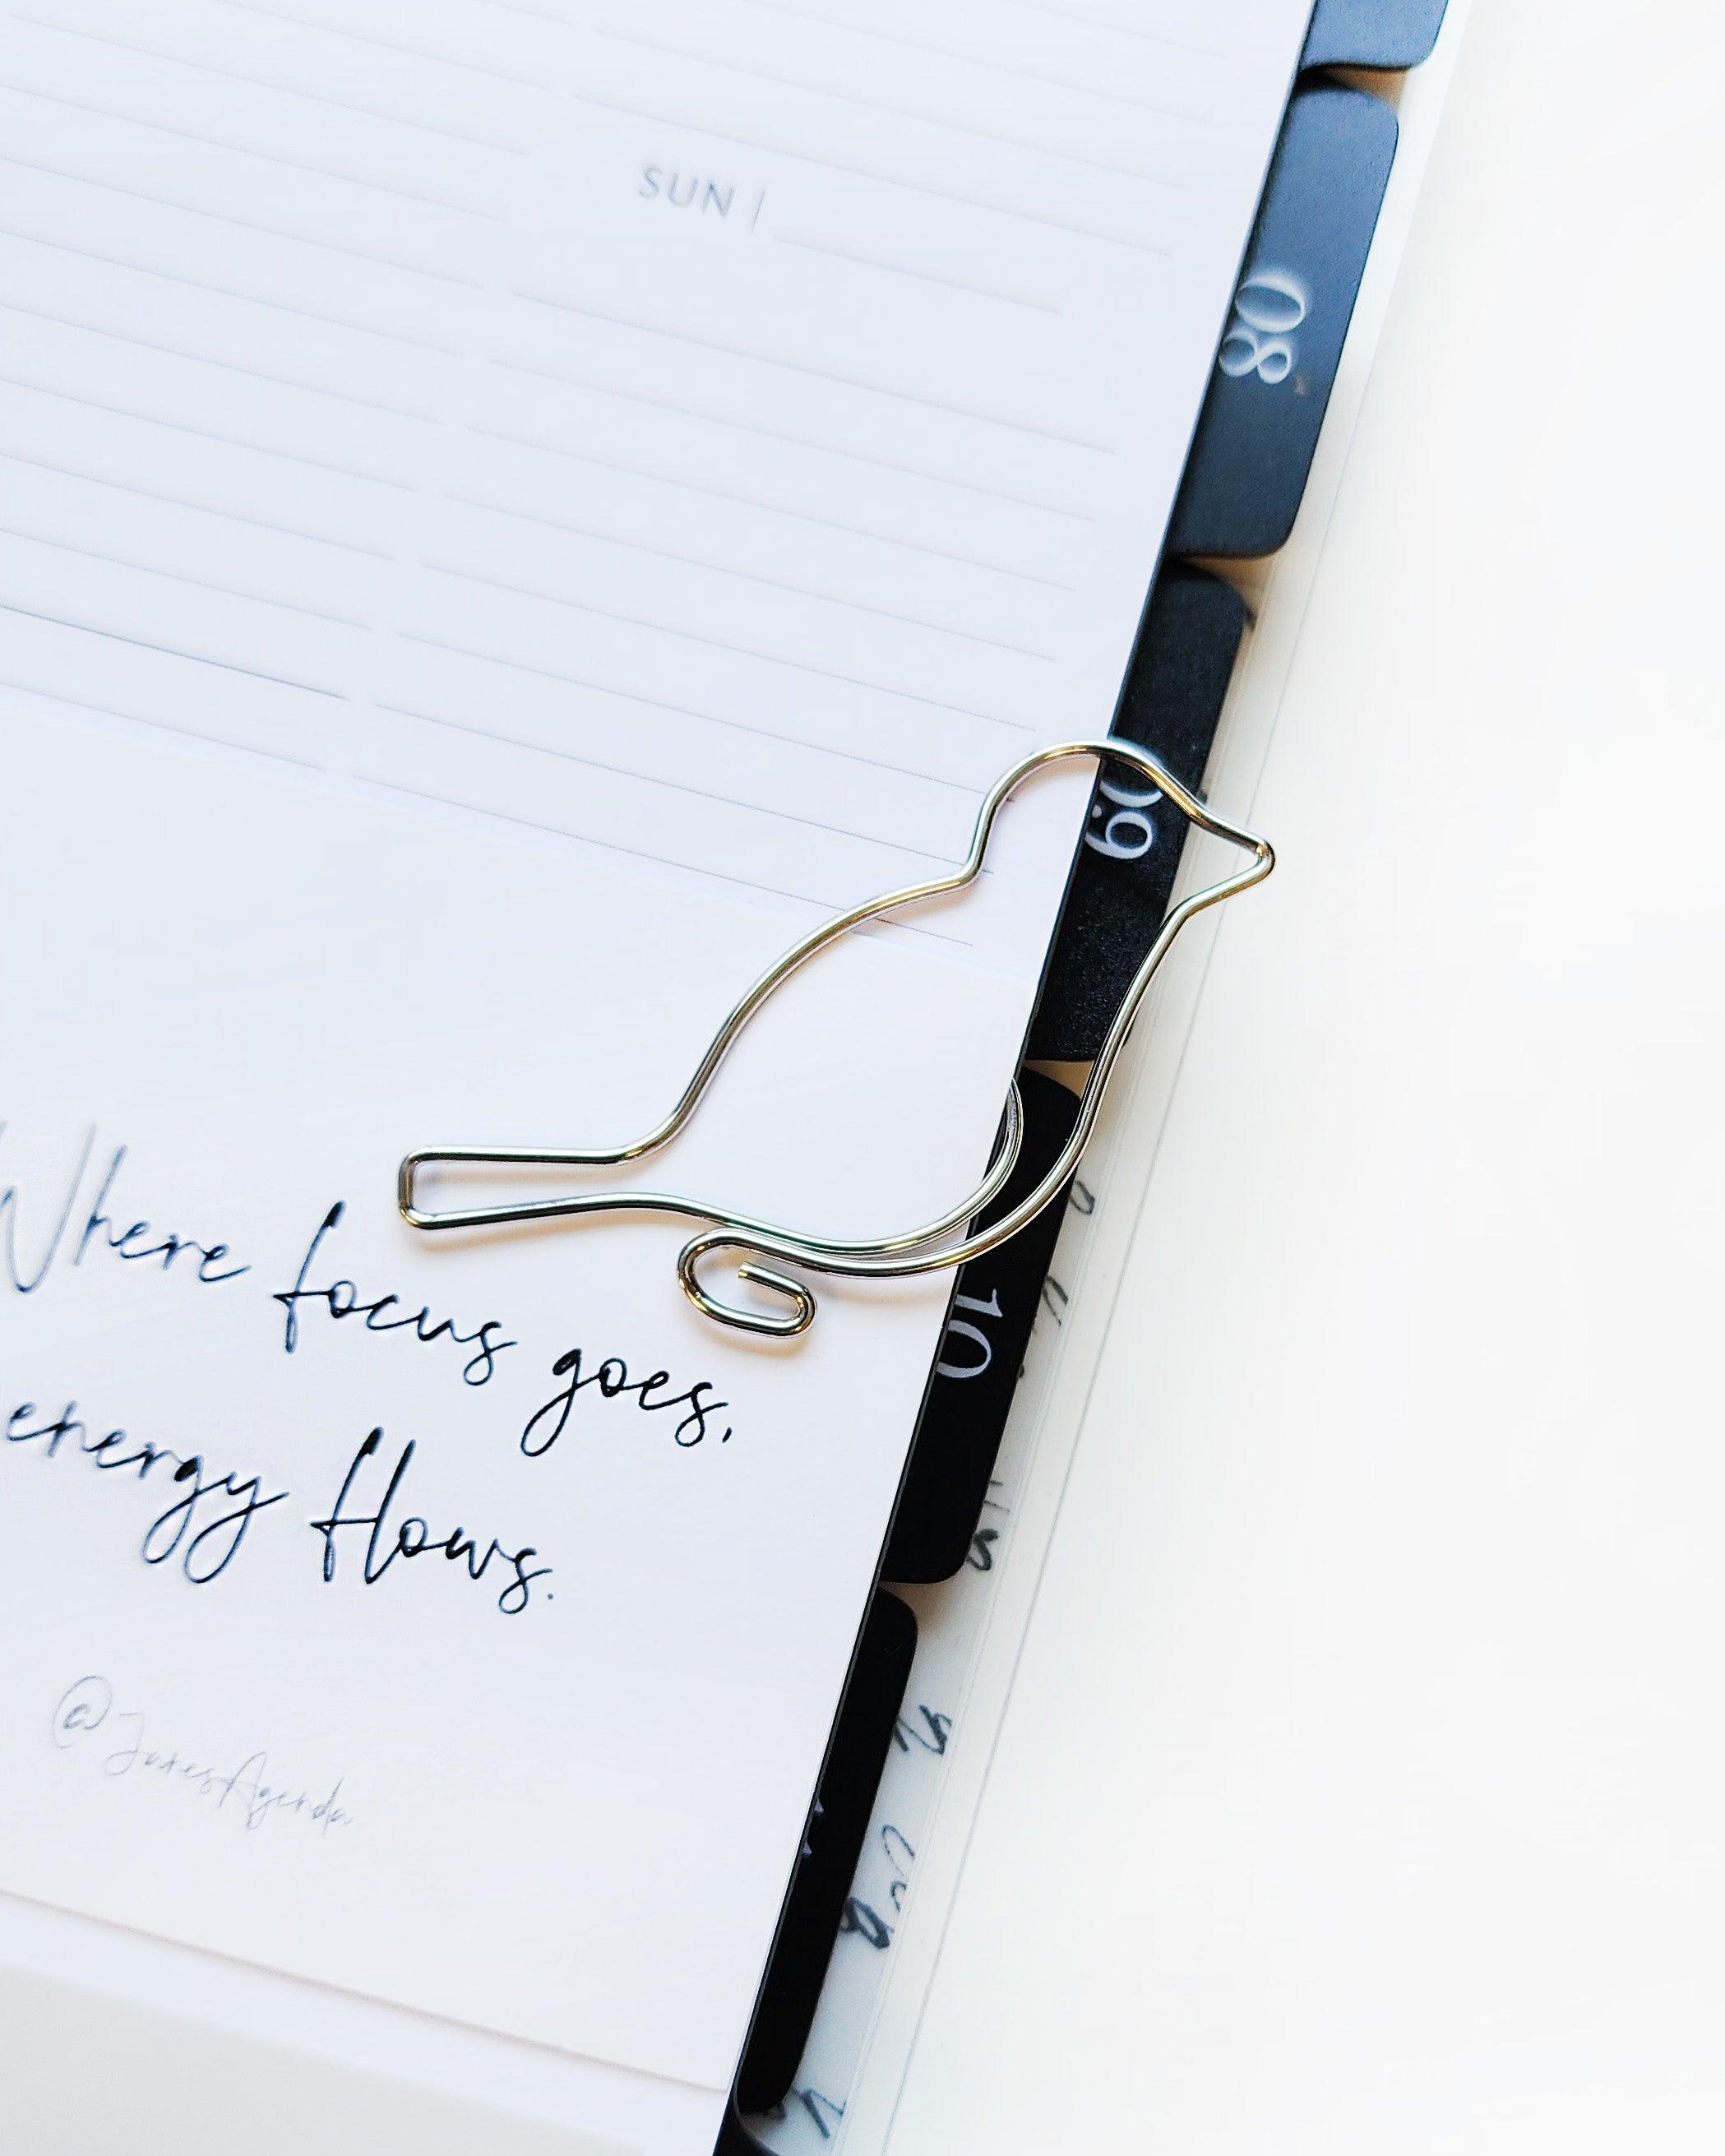 SUN |
08
09
Where focus goes,
energy flows.
10
@JanesAgenda